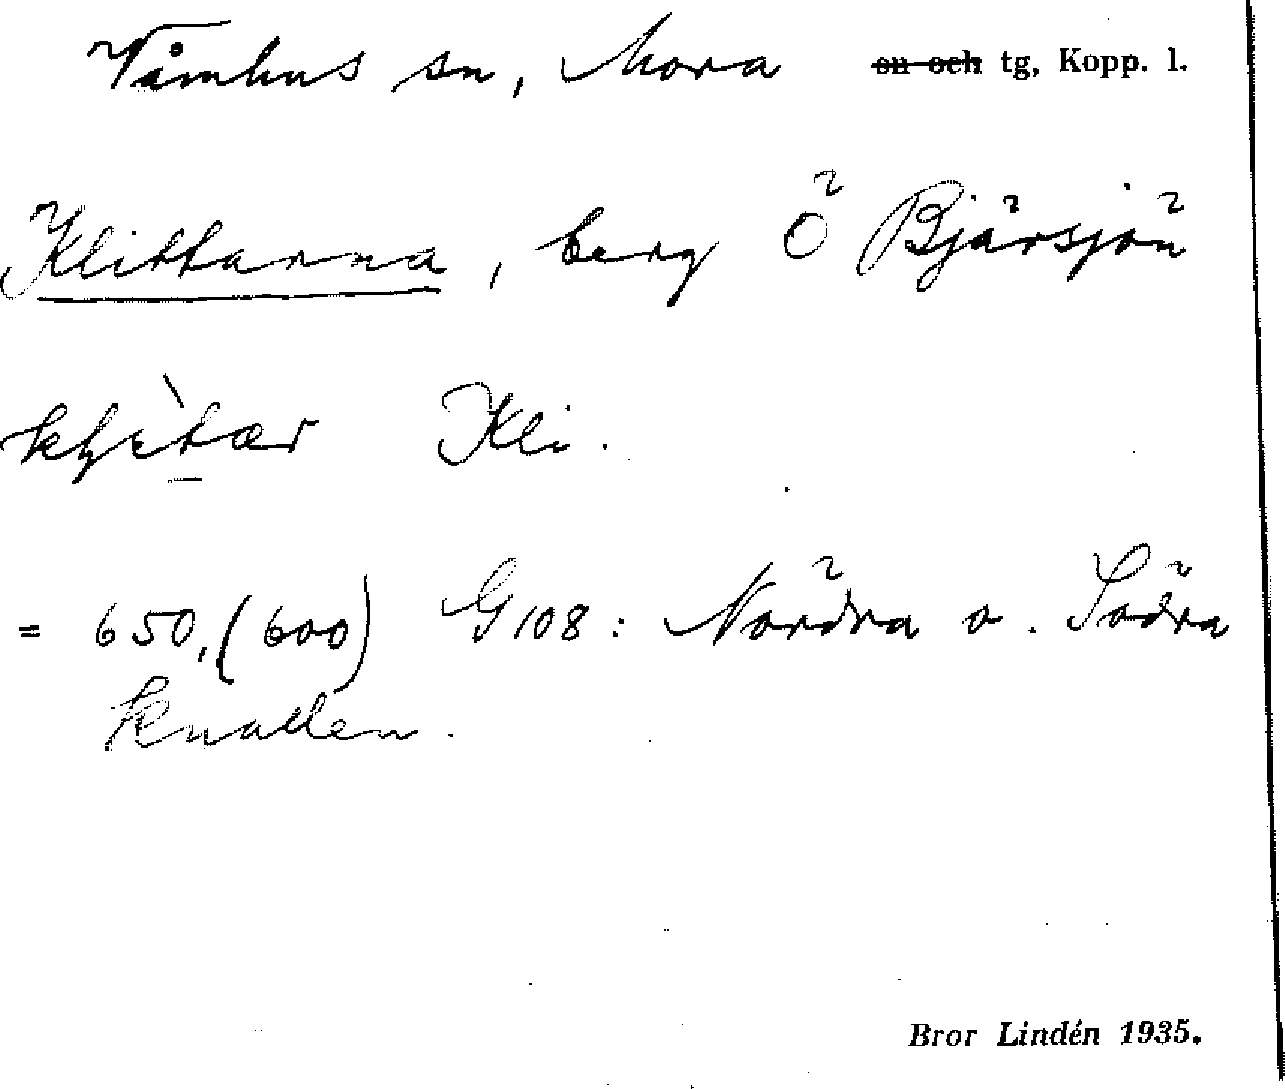 Våmhus sn, Mora ~~sn och~~ tg, Kopp. l.
Klittarna, berg Ö Bjärsjön
Kli.
= 650, (600) G108: Nördra o. Södra
Knallen.
Bror Lindén 1935.